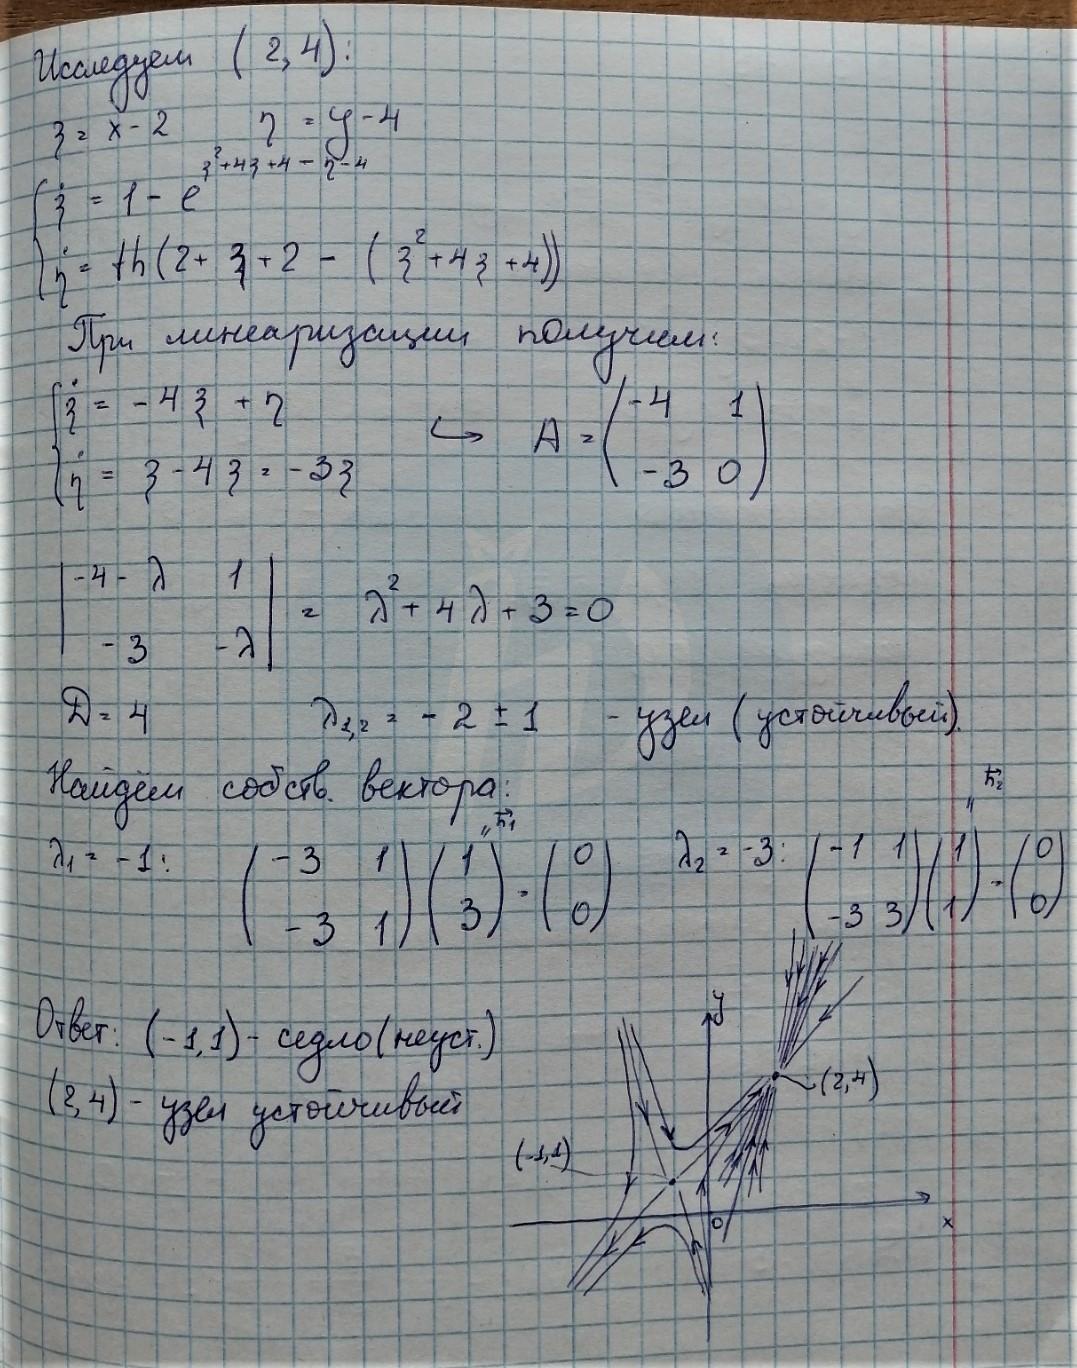 Исследуем (2,4):
ξ = x - 2 η = y - 4
ξ̇ = 1 - e^{ξ²+4ξ+4-η-4}
η̇ = th(2 + ξ + 2 - (ξ² + 4ξ + 4))
При линеаризации получим:
ξ̇ = -4ξ + η
η̇ = ξ - 4ξ = -3ξ ↪ A = (-4 1; -3 0)
|-4-λ 1; -3 -λ| = λ² + 4λ + 3 = 0
D = 4 λ₁,₂ = -2 ± 1 - узел (устойчивый).
Найдём собств. вектора:
λ₁ = -1: (-3 1; -3 1) (1; 3) = (0; 0) "h⃗₁ λ₂ = -3: (-1 1; -3 3) (1; 1) = (0; 0) "h⃗₂
Ответ: (-1,1) - седло (неуст.)
(2,4) - узел устойчивый
y
(2,4)
(-1,1)
0
x